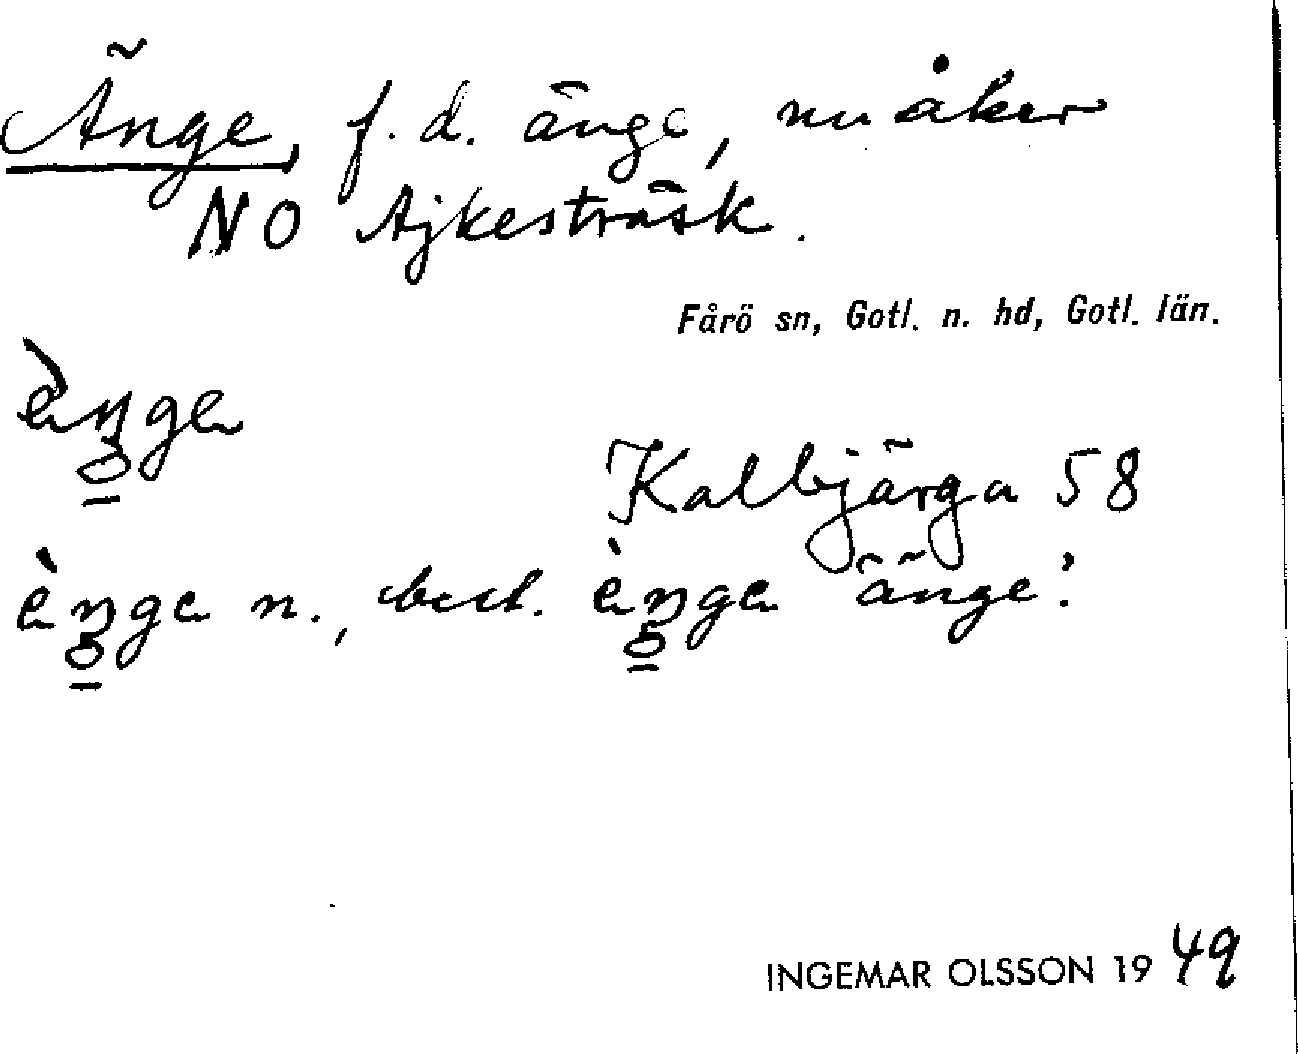 Änge, f.d. änge, nu åker
NO Ajkesträsk.
Fårö sn, Gotl. n. hd, Gotl. län.
èŋ̥ge
Kalbjärga 58
èŋ̥ge n., best. èŋ̥ge änge'.
INGEMAR OLSSON 1949